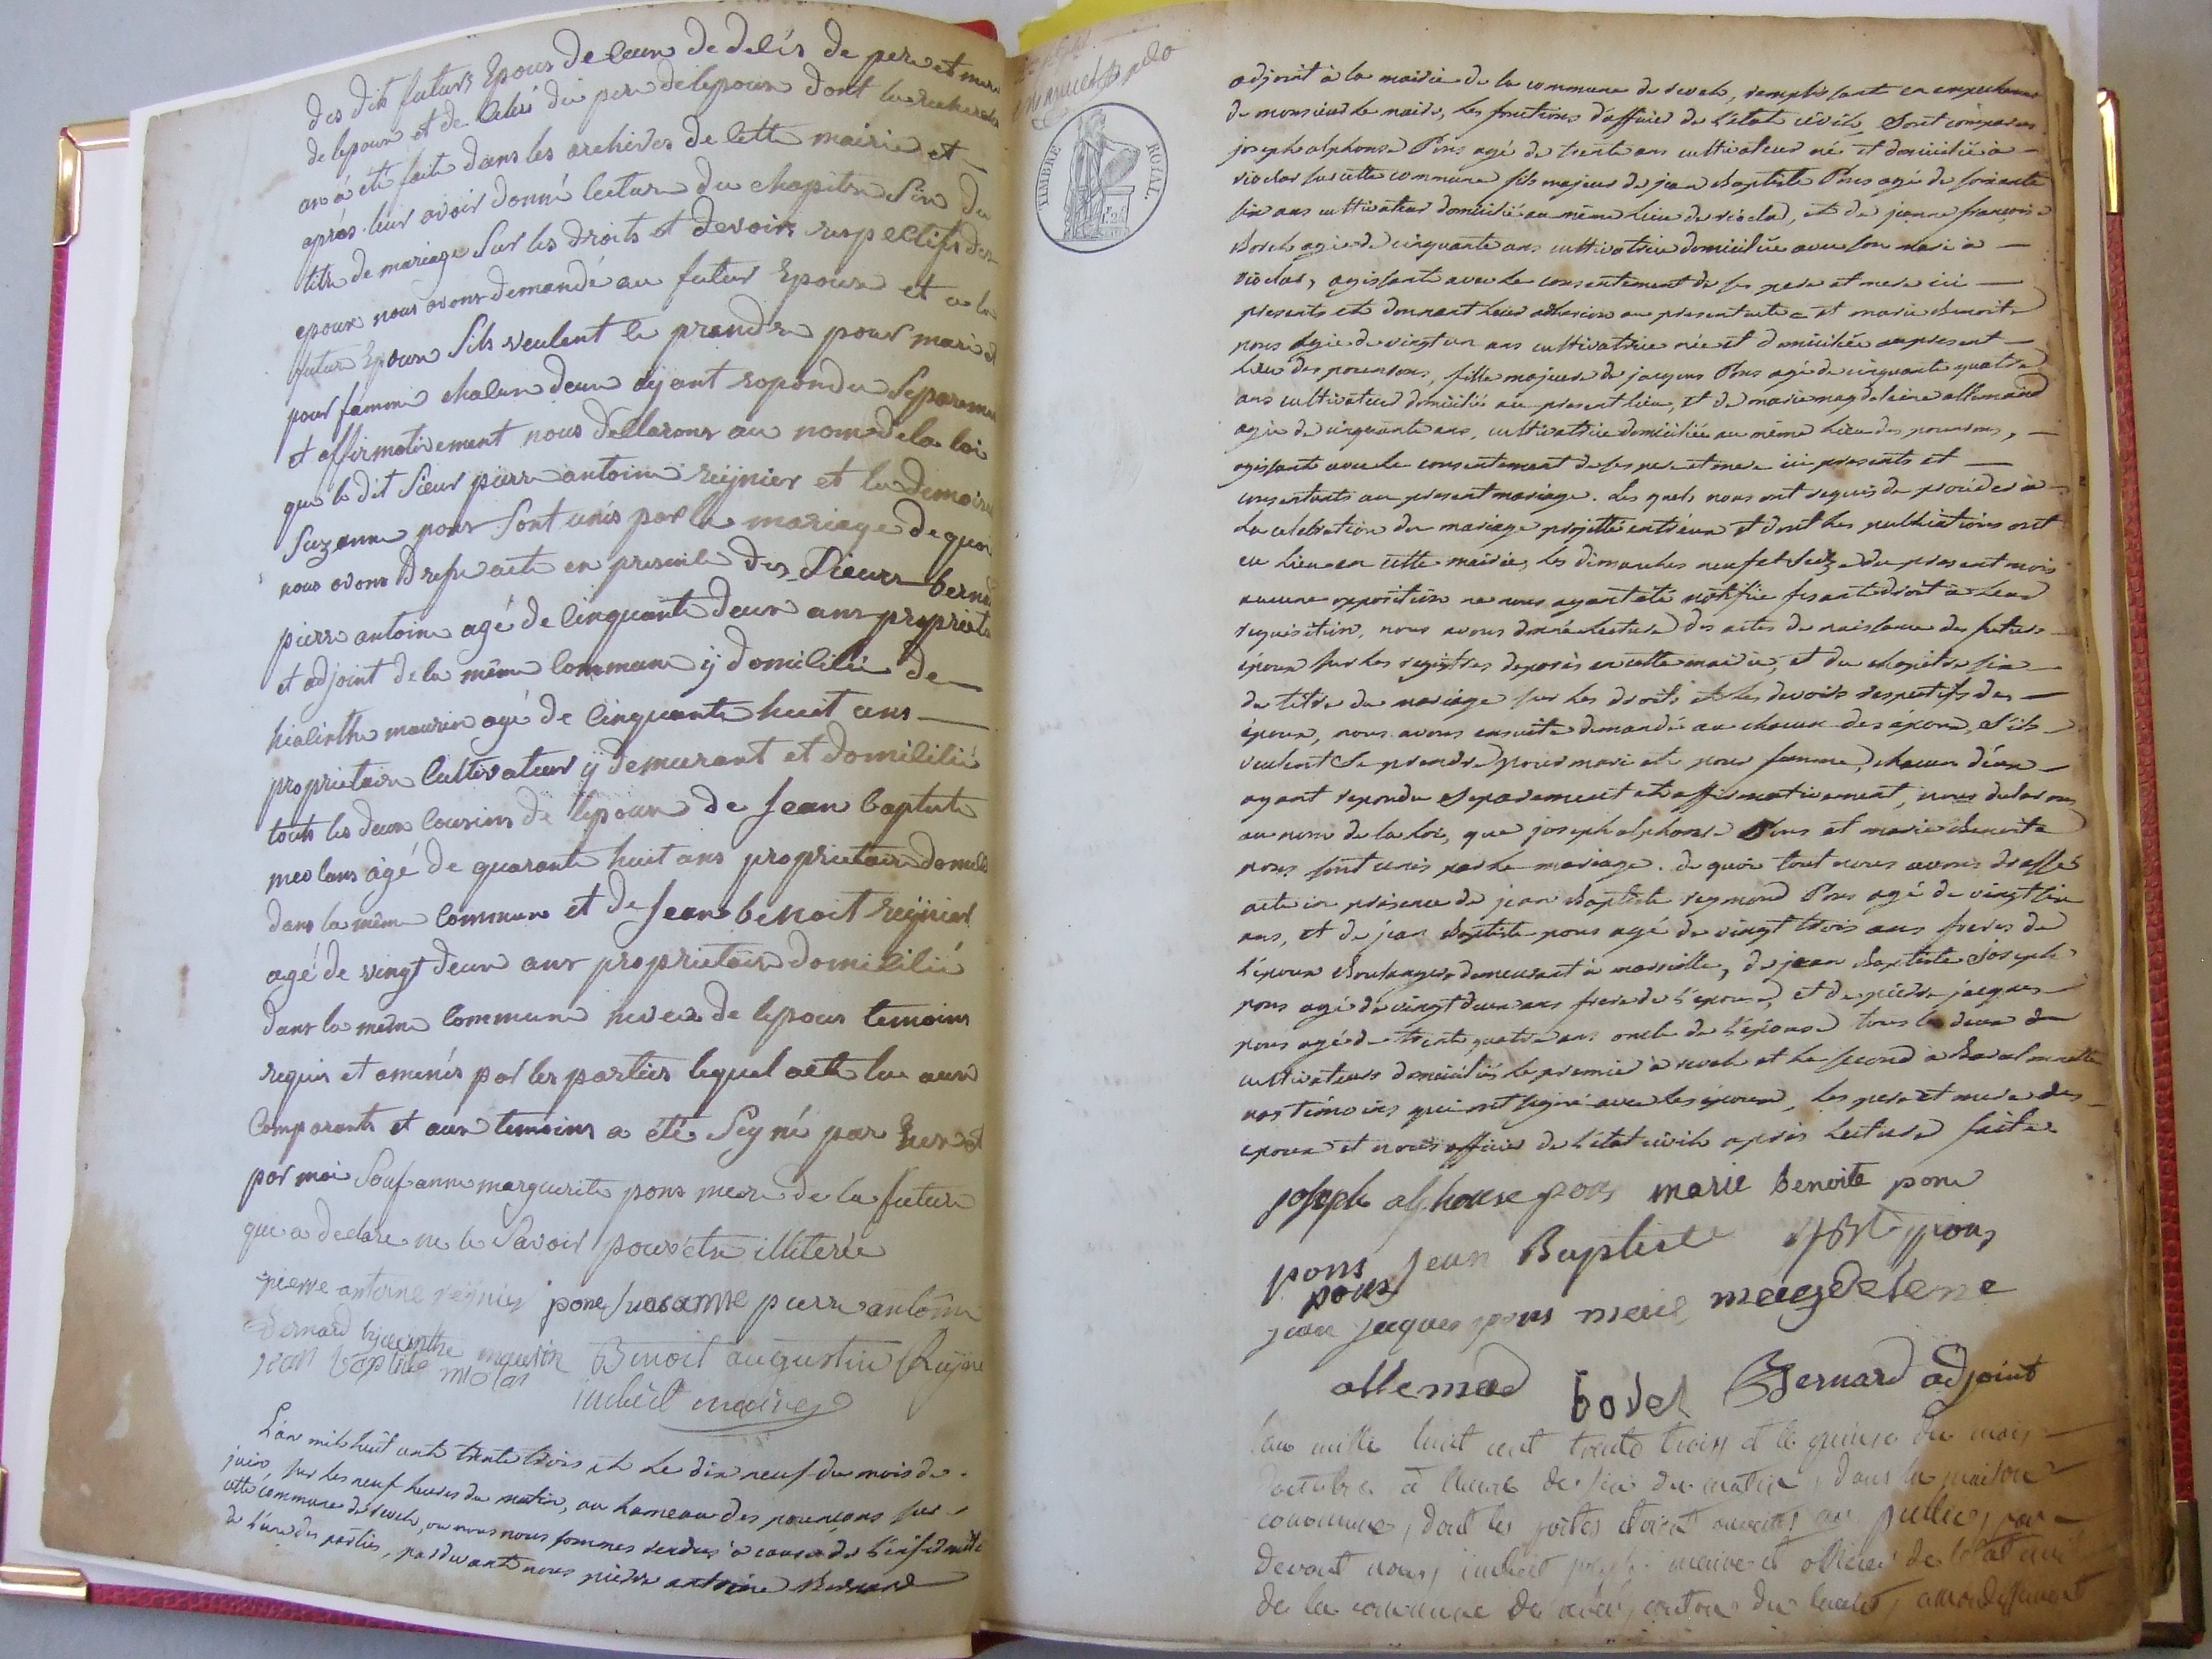 des dits futurs Epoux de leurs de deces de pere et mere
de lepoux et de celui du pere de lepouse dont la recherche
an à été faite dans les archives de cette mairie et
après leur avoir donné lecture du chapitre Six du
titre de mariage Sur les droits et devoirs respectifs des
epoux nous avons demandé au futur Epoux et a la
future Epouse Sils veulent le prendre pour mari et
pour famme chalun deux ayant repondu Séparemen
et affirmativement nous déclarons au nom de la loi
que le dit Sieur pierre antoine reynier et la demoise
Suzanne pons Sont unis par le mariage de quoi
nous avons dressé acte en presence des Sieurs berna
pierre antoine agé de cinquante deux ans propriet
et adjoint de la même commune ÿ domicilié de
hiacinthe maurin agé de cinquante huit ans
proprietaire cultivateur ÿ demeurant et domicilié
touts les deux cousins de lepoux de Jean baptiste
meolans agé de quarante huit ans proprietaire domicili
dans la même commune et de Jean benoit reynier
agé de vingt deux ans proprietaire domicilié
dans la même commune neveu de lepoux temoins
requis et amenés par les parties lequel acte lu aux
Comparants et aux temoins a été Signé par Eux et
par moi Sauf anne marguerite pons mere de la future
qui a declaré ne le Savoir pour être illiterée
pierre antoine reynier pons susanne pierre antoine
Bernard hyacinthe maurin Benoit augustin Reyne
jean baptiste meolan
imbert maire
L'an mil huit cent trente trois et le dix neuf du mois de
juin, sur les neuf heures du matin, au hameau des pounçons sur
cette commune de revel, ou nous nous sommes rendus à cause de l'infirmité
de l'une des parties, pardevant nous pierre antoine Bernard
TIMBRE ROYAL
adjoint à la mairie de la commune de revel, remplissant en empechement
de monsieur le maire, les fonctions d'officier de l'état civil, Sont comparus
joseph alphonse Pons agé de trente ans cultivateur né et domicilié à
rioclar sur cette commune fils majeur de jean Baptiste Pons agé de soixante
six ans cultivateur domicilié au même lieu de rioclar, et de jeanne françoise
Borel agée de cinquante ans cultivatrice domiciliée avec son mari à
rioclar, agissant avec le consentement de ses pere et mere ici
presents et donnant leur adhesion au present acte = et marie Benoite
pons agée de vingt un ans cultivatrice née et domiciliée au present
lieu des pounsons, fille majeure de jacques Pons agé de cinquante quatre
ans cultivateur domicilié au present lieu, et de marie magdeleine allemand
agée de cinquante ans, cultivatrice domiciliée au même lieu des pounsons,
agissant avec le consentement de ses pere et mere ici presents et
consentants au present mariage. Les quels nous ont requis de procéder à
la célébration du mariage projetté entr'eux et dont les publications ont
eu lieu en cette mairie, les dimanches neuf et seize du present mois
aucune opposition ne nous ayant été notifiée fesant droit à leur
requisition, nous avons donné lecture des actes de naissance des futurs
époux sur les registres deposés en cette mairie, et du chapitre six
du titre du mariage sur les droits et les devoirs respectifs des
époux, nous avons ensuite demandé au chacun des époux, s'ils
veulent se prendre pour mari et pour femme, chacun d'eux
ayant repondu separement et affirmativement, nous declarons
au nom de la loi, que joseph alphonse Pons et marie Benoite
pons sont unis par le mariage. de quoi tout nous avons dressé
acte en présence de jean Baptiste reymond Pons agé de vingt six
ans, et de jean Baptiste pons agé de vingt trois ans freres de
l'époux Boulangers demeurant à marseille, de jean Baptiste Joseph
pons agé de vingt deux ans frere de l'épouse, et de pierre jacques
pons agé de trente quatre ans oncle de l'épouse tous les deux
cultivateurs domiciliés le premier à revel et le second à
nos témoins qui ont signé avec les époux, les pere et mere des
epoux et nous officier de l'état civil après lecture faite
joseph alphonse pons marie Benoite pons
pons Jean Baptiste pons
pons
jean jacques pons marie magdelene
allemand borel Bernard adjoint
L'an mille huit cent trente trois et le quinze du mois
d'octobre à l'heure de six du matin, dans la maison
commune, dont les portes étoient ouvertes au public, par
devant nous, imbert maire et officier de l'état civil
de la commune de revel, canton du lauzet, arrondissement